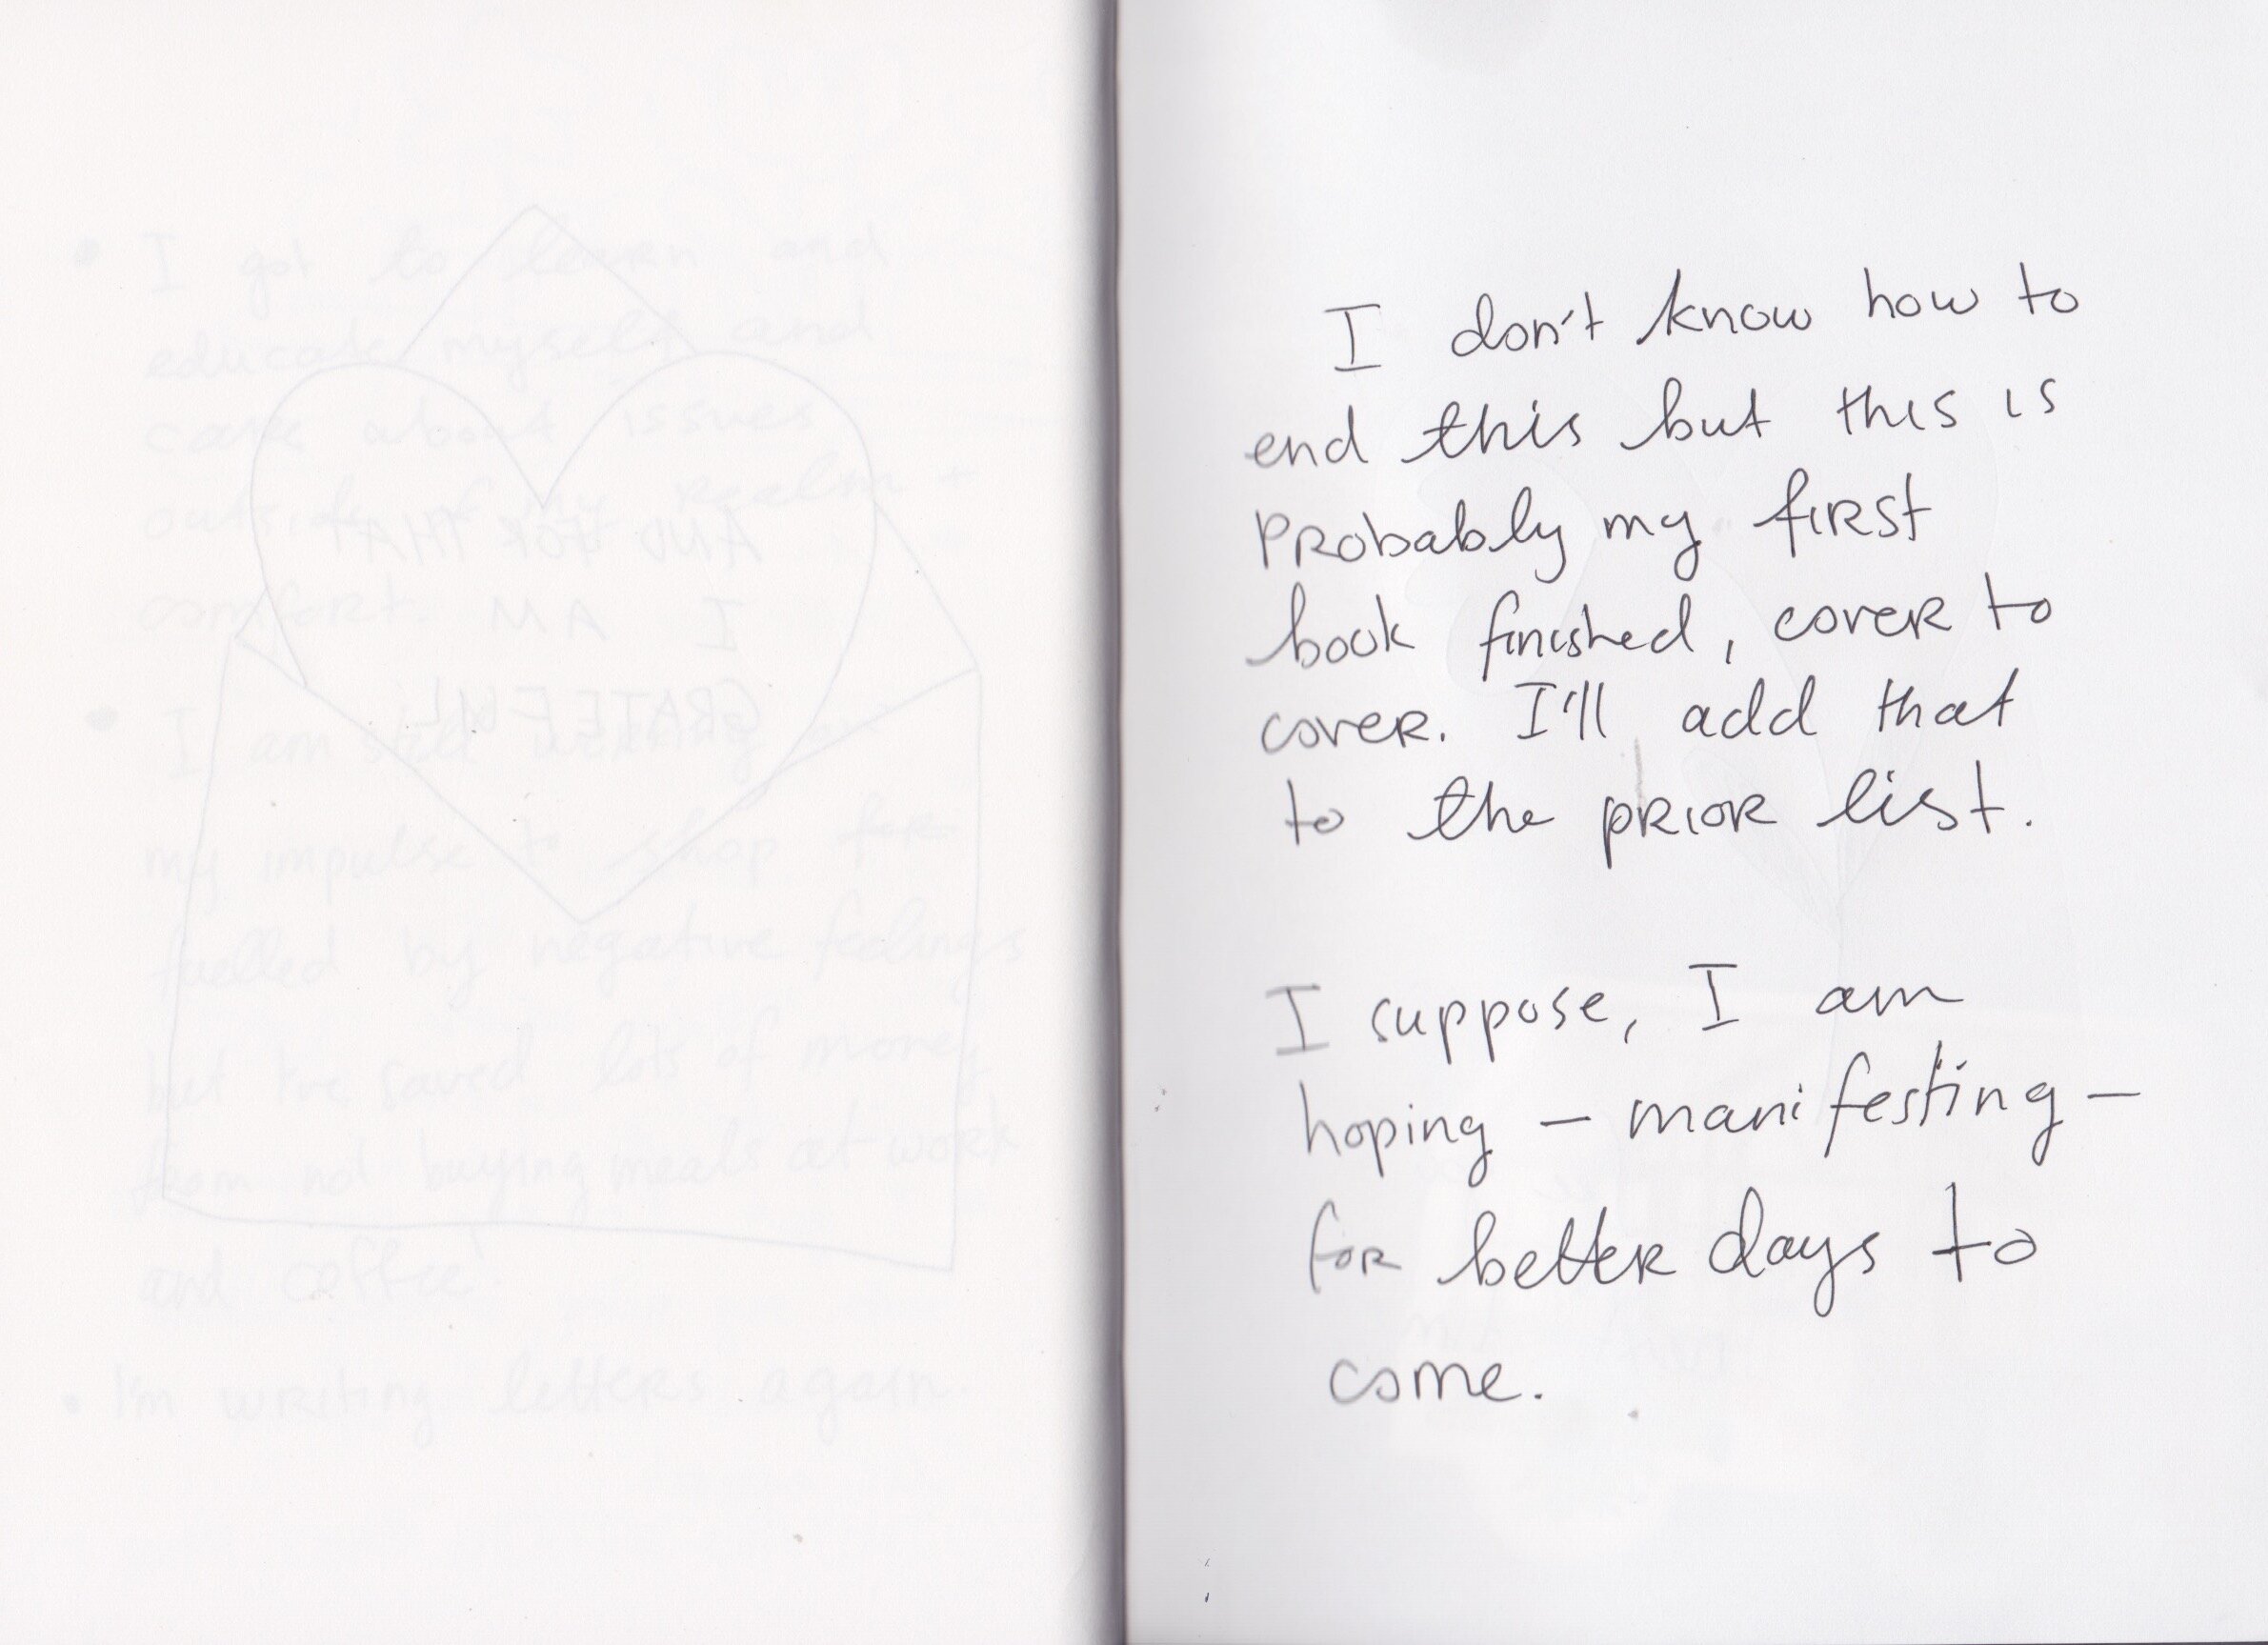 • I got to learn and
educate myself and
cares about issues
outside of my realm +
comfort.
• I am still working on
my impulse to shop for
fuelled by negative feelings
but I've saved lots of money
from not buying meals at work
and coffee!
• I'm writing letters again
AND FOR THAT
I AM
GRATEFUL
I don't know how to
end this but this is
probably my first
book finished, cover to
cover. I'll add that
to the prior list.
I suppose, I am
hoping – manifesting –
for better days to
come.